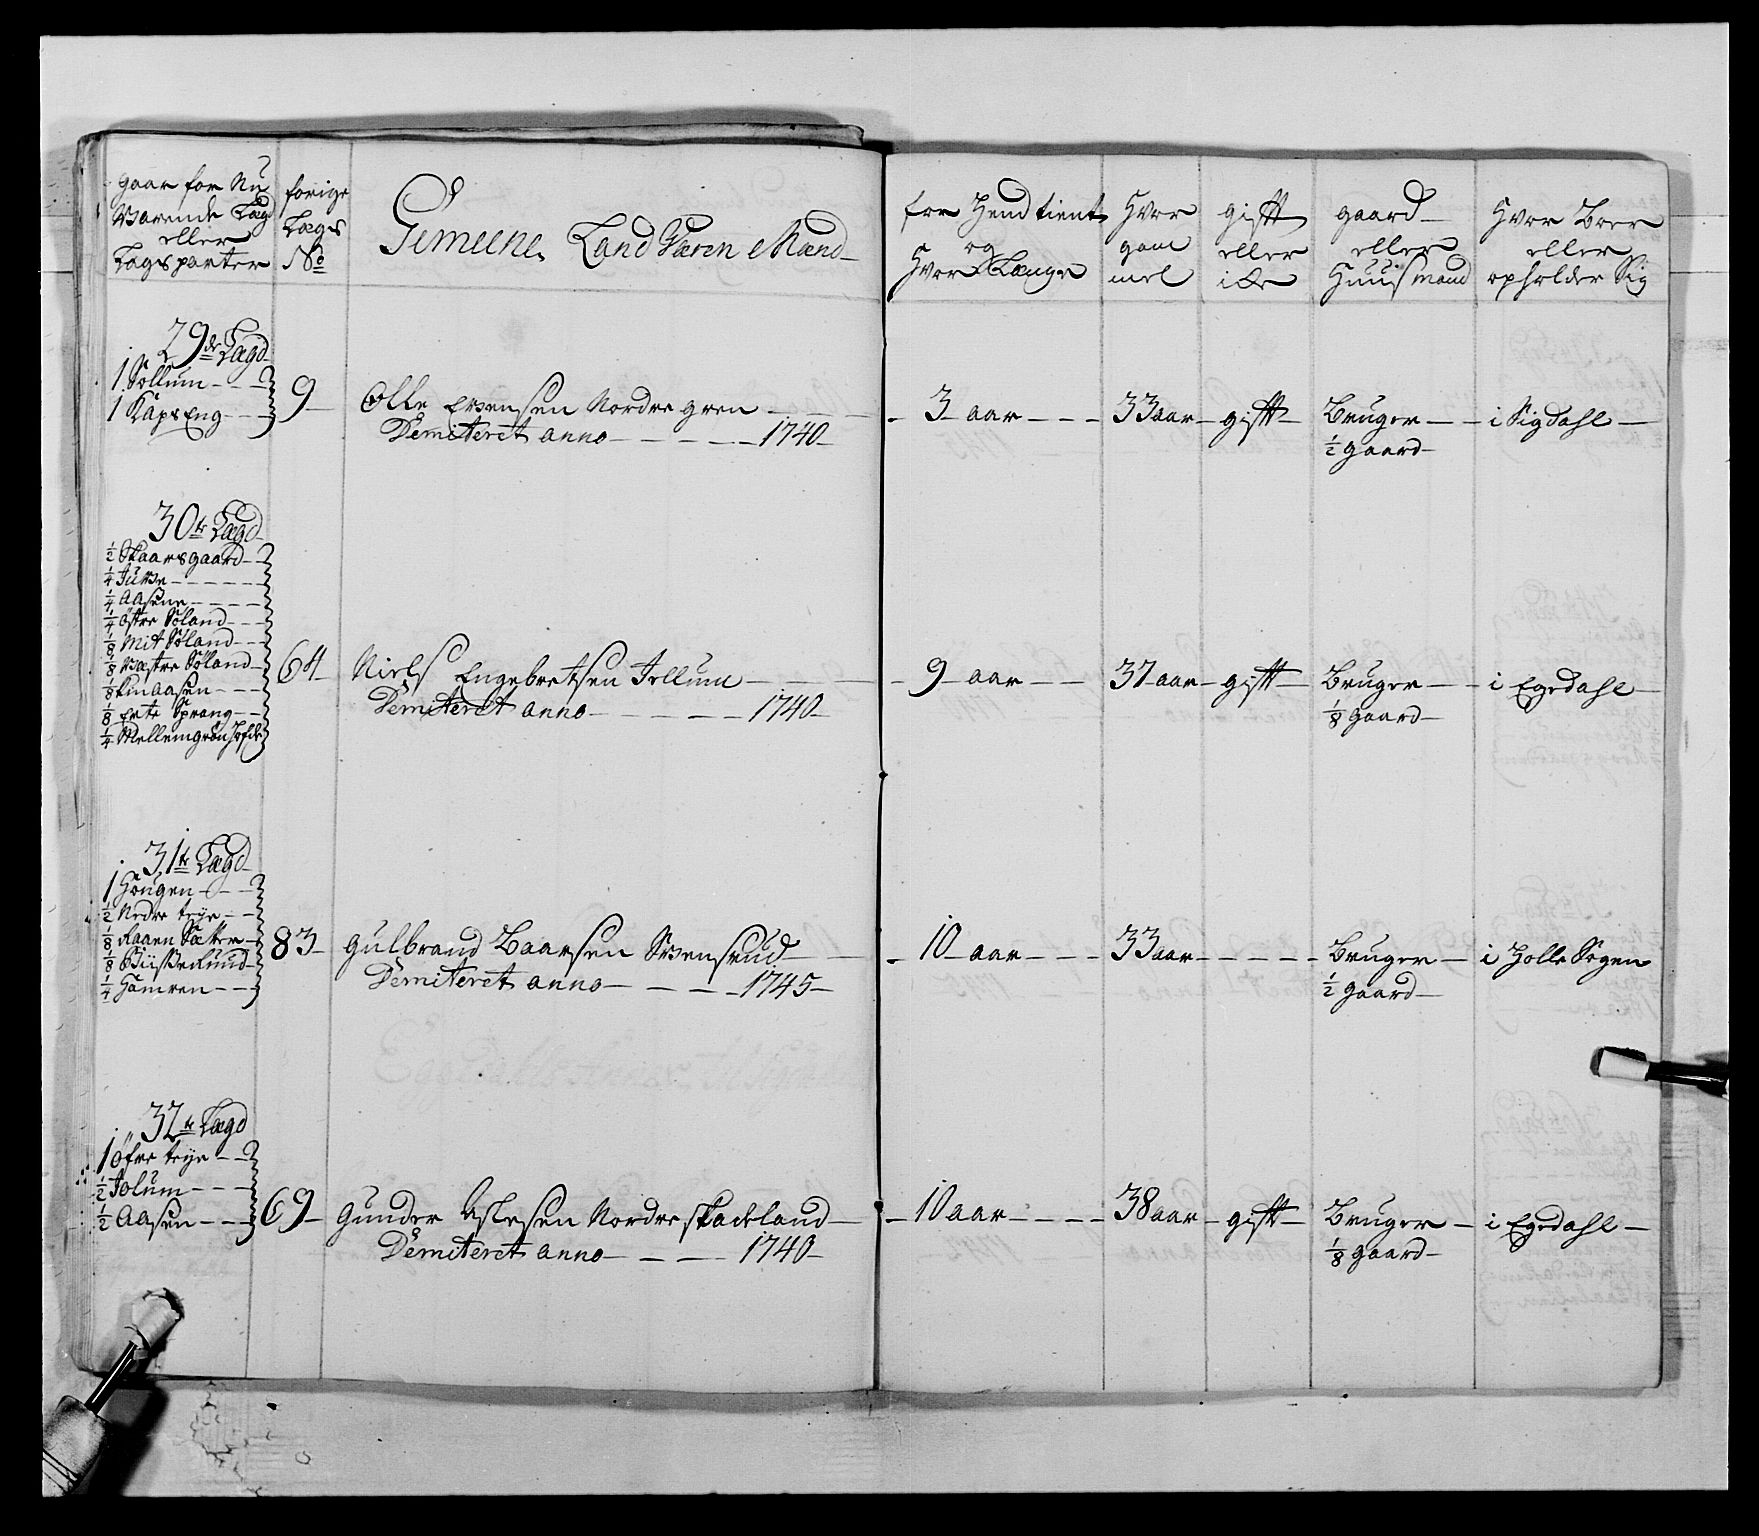 gaar for Nu
Værende Lægd
eller
Lægsparter
forige
Lægs
No
Gemeene Land Væren Mænd
før Hend tient
og
Hvor Længe
Hvor
gam
mel
gift
eller
iche
gaard
eller
Huusmand
Hvor Boer
eller
opholder Sig
29de Lægd
1 Sollum
1 KapsEng
9
Olle Ersensen Nordre gren
Demiteret anno 1740
3 aar
33 aar
gift
Bruger
1/2 gaard
i Sigdahl
30te Lægd
1/2 Skaarsgaard
1/4 Jurse
1/4 Aasene
1/4 østre Søland
1/8 Mit Søland
1/8 Væstre Søland
1/8 Linaasen
1/8 Erte Sprang
1/4 Mellemgrøn
64
Niels Engebretsen Jellum
Demiteret anno 1740
9 aar
37 aar
gift
Bruger
1/8 gaard
i Egedahl
31te Lægd
1 Hougen
1/2 Nedre trye
1/8 Raaen Sætter
1/8
1/4 Hamren
83
Gulbrand Baarsen Svensrud
Demiteret anno 1745
10 aar
33 aar
Bruger
1/2 gaard
i Holle Sogen
32te Lægd
1 Øfre trye
1/2 Jolum
1/2 Aasen
69
Gunder Aslesen Nordre skadeland
Demiteret anno 1740
10 aar
38 aar
gift
Bruger
1/8 gaard
i Egedahl